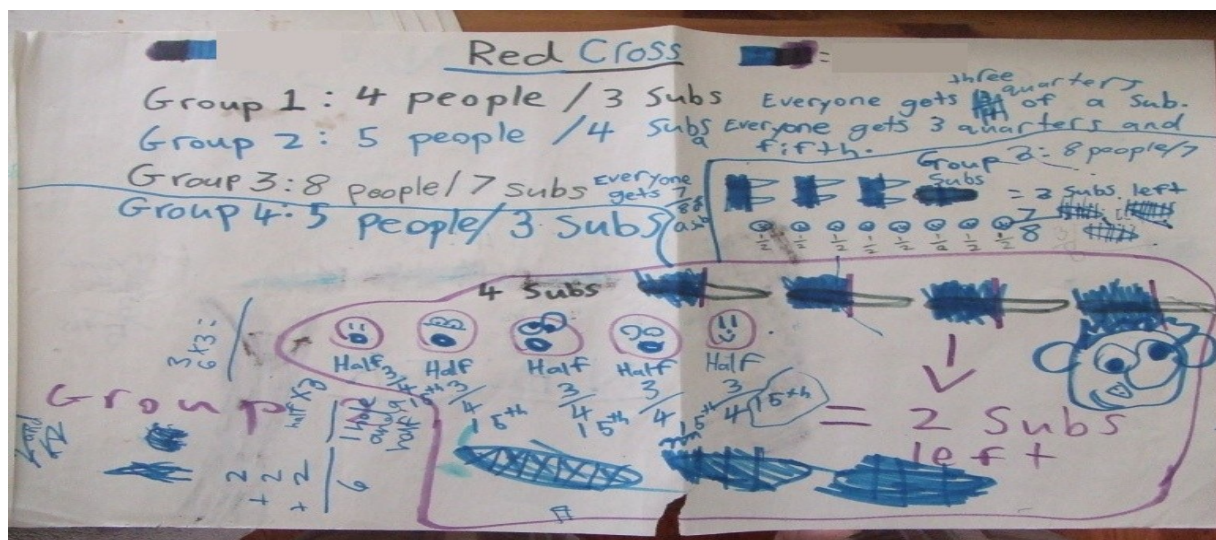 Red Cross
=
Group 1 : 4 people / 3 Subs
three quarters
Everyone gets of a Sub.
Group 2 : 5 people / 4 Subs
Everyone gets 3 quarters and
a fifth.
Group 3 : 8 people / 7 Subs
Everyone gets 7/8
Group 4 : 5 people / 3 Subs
Group 3 : 8 people / 7
Subs
= 3 Subs left
1/2 1/2 1/2 1/2 1/2 1/2 1/2 1/2
7/8
4 Subs
Half Half Half Half Half
3/4 3/4 3/4 3/4 3/4
15th 15th 15th 15th 15th
= 2 Subs
left
Group 2
6x3=
3
half x3
1 whole
and a
half
2
+ 2
+ 2
6